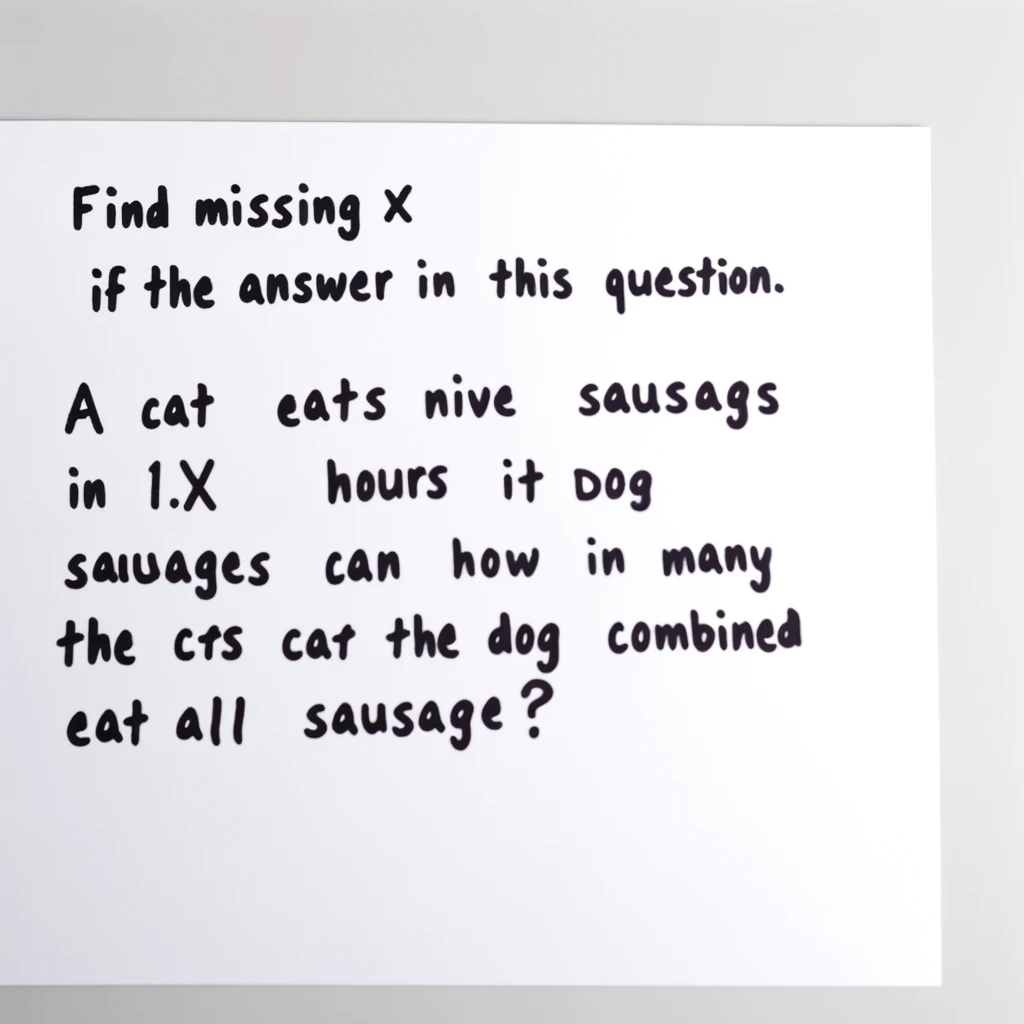 Find missing X
if the answer in this question.
A cat eats nive sausags
in 1.X hours it Dog
saıuages can how in many
the cts cat the dog combined
eat all sausage?